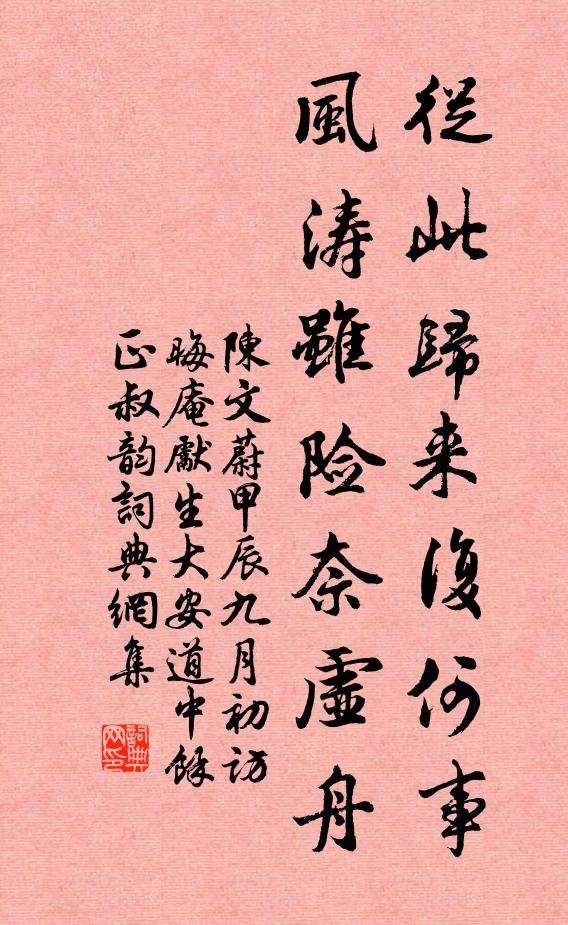 從此歸来復何事
風涛雖险奈虛舟
陳文蔚甲辰九月初访
晦庵獻生大安道中餘
正叔韵詞典網集
詞典
网印